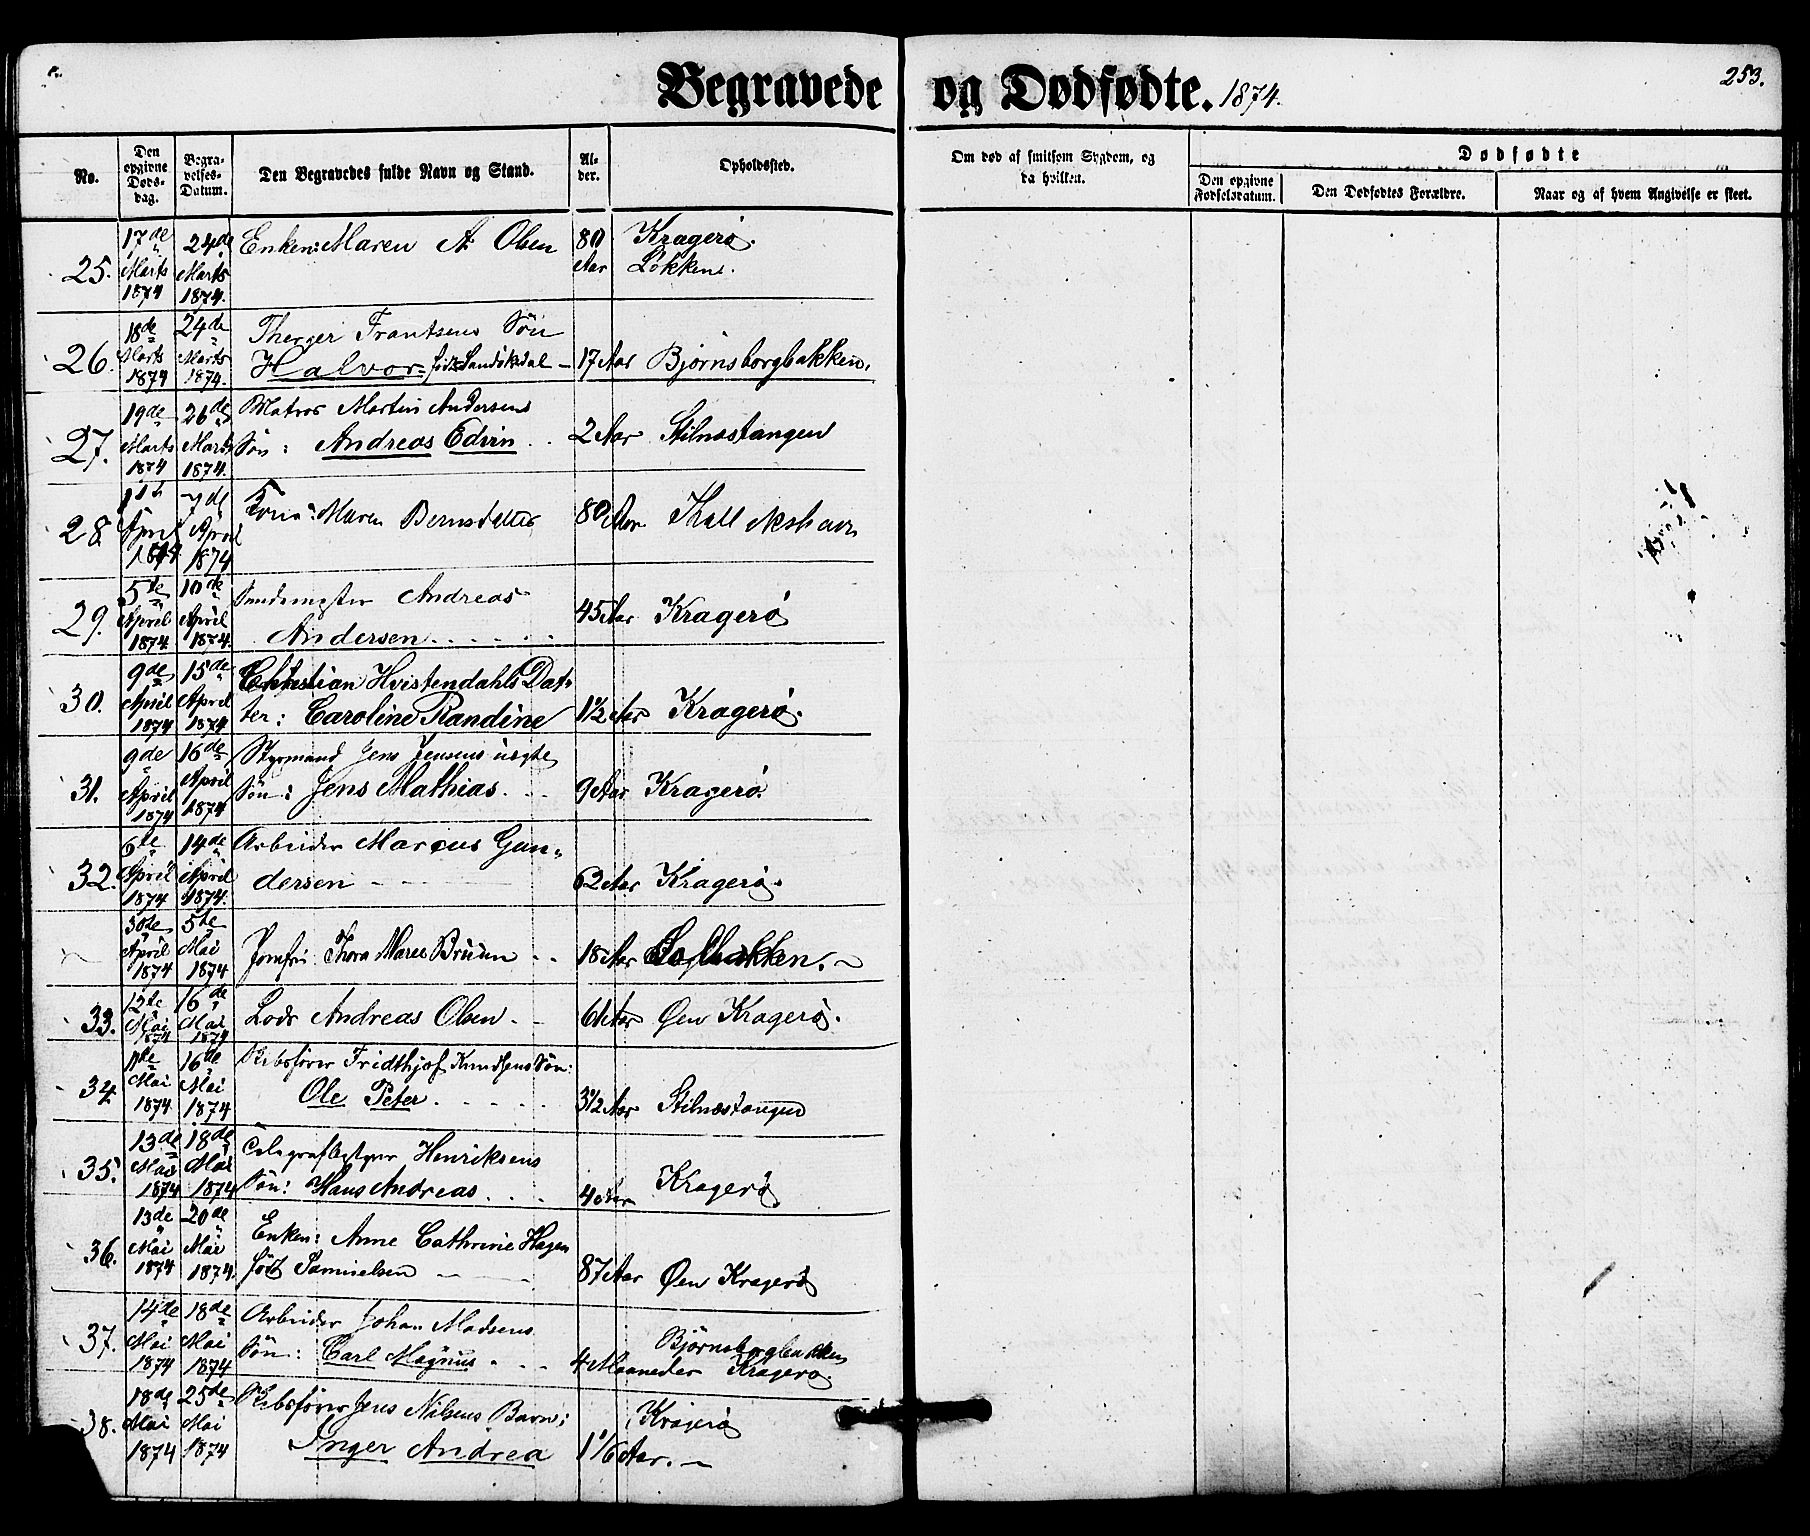 Begravede og Dødfødte. 1874.
253.
No.
Den opgivne Døds-dag.
Begra-velses-Datum.
Den Begravedes fulde Navn og Stand.
Al-der.
Opholdssted.
Om død af smitsom Sygdom, og da hvilken.
Dødfødte
Den opgivne Fødselsdatum.
Den Dødfødtes Forældre.
Naar og af hvem Angivelse er skeet.
25. 17de Marts 1874 24de Marts 1874. Enken: Maren A. Olsen 80 Aar Kragerø. Løkkene.
26. 18de Marts 1874 24de Marts 1874. Therger Frantsens Søn
Halvor født Sandøkdal 17 Aar Bjørnsborgbakken.
27. 19de Marts 1874 26de Marts 1874. Matros Martin Andersens
Søn: Andreas Edvin 2 Aar Stilnæstangen
28 April 1874 7de April 1874 Maren 80 Aar
29. 5te April 1874. 10de April 1874. Andreas
Andersen 45 Aar Kragerø
30. 9de April 1874 15de April 1874 Christian Hvistendahls Dat-
ter: Caroline Randine 1½ Aar Kragerø.
31. 9de April 1874 16de April 1874 Styrmand Jens Jensens uægte
Søn: Jens Mathias. 9 Aar Kragerø.
32. 6te April 1874 14de April 1874. Arbeider Marcus Gun-
dersen 62 Aar Kragerø.
30te April 1874 5te Mai 1874 Jomfru Thora Maree Bruun 18 Aar
33. 12te Mai 1874 16de Mai 1874 Lods Andreas Olsen. 61 Aar Øen Kragerø.
34. 11te Mai 1874 16de Mai 1874 Skibsfører Fridthjof Knudsens Søn:
Ole Peter. 3½ Aar Stilnæstangen
35. 13de Mai 1874 18de Mai 1874 Henriksens
Søn: Hans Andreas. 4 Aar Kragerø
36. 13de Mai 1874 20de Mai 1874. Enken: Anne Cathrine Hagen
født Samuelsen 87 Aar Øen Kragerø
37. 14de Mai 1874 18de Mai 1874 Arbeider Johan Madsens
Søn: Carl Magnus. 4 Maaneder Bjørnsborgbakken Kragerø.
38. 18de Mai 1874 25de Mai 1874 Skibsfører Jens Nilsens Barn:
Inger Andrea 1 1/6 Aar. Kragerø